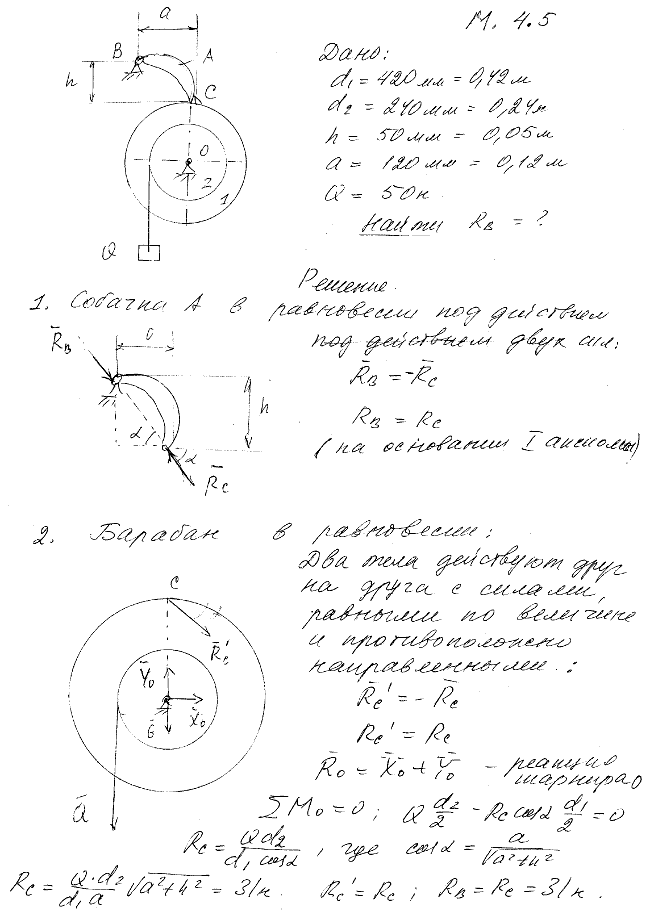 М. 4.5
a
B
A
C
h
O
2
1
Q
Дано:
d₁ = 420 мм = 0,42 м
d₂ = 240 мм = 0,24 м
h = 50 мм = 0,05 м
a = 120 мм = 0,12 м
Q = 50 н
Найти R_B = ?
Решение.
1. Собачка А в равновесии под действием
под действием двух сил:
R̄_B = -R̄_C
R_B = R_C
(на основании I аксиомы)
R̄_B
h
α
α
R̄_C
2. Барабан в равновесии:
Два тела действуют друг
на друга с силами,
равными по величине
и противоположно
направленными:
R̄_C' = -R̄_C
R_C' = R_C
R̄_O = X̄_O + Ȳ_O - реакция
шарнира O
C
Ȳ_O
X̄_O
Ḡ
Q̄
ΣM_O = 0; Q d₂/2 - R_C cosα d₁/2 = 0
R_C = Q d₂/(d₁ cosα), где cosα = a/√(a²+h²)
R_C = Q·d₂/(d₁a) √(a²+h²) = 31 н. R_C' = R_C; R_B = R_C = 31 н.